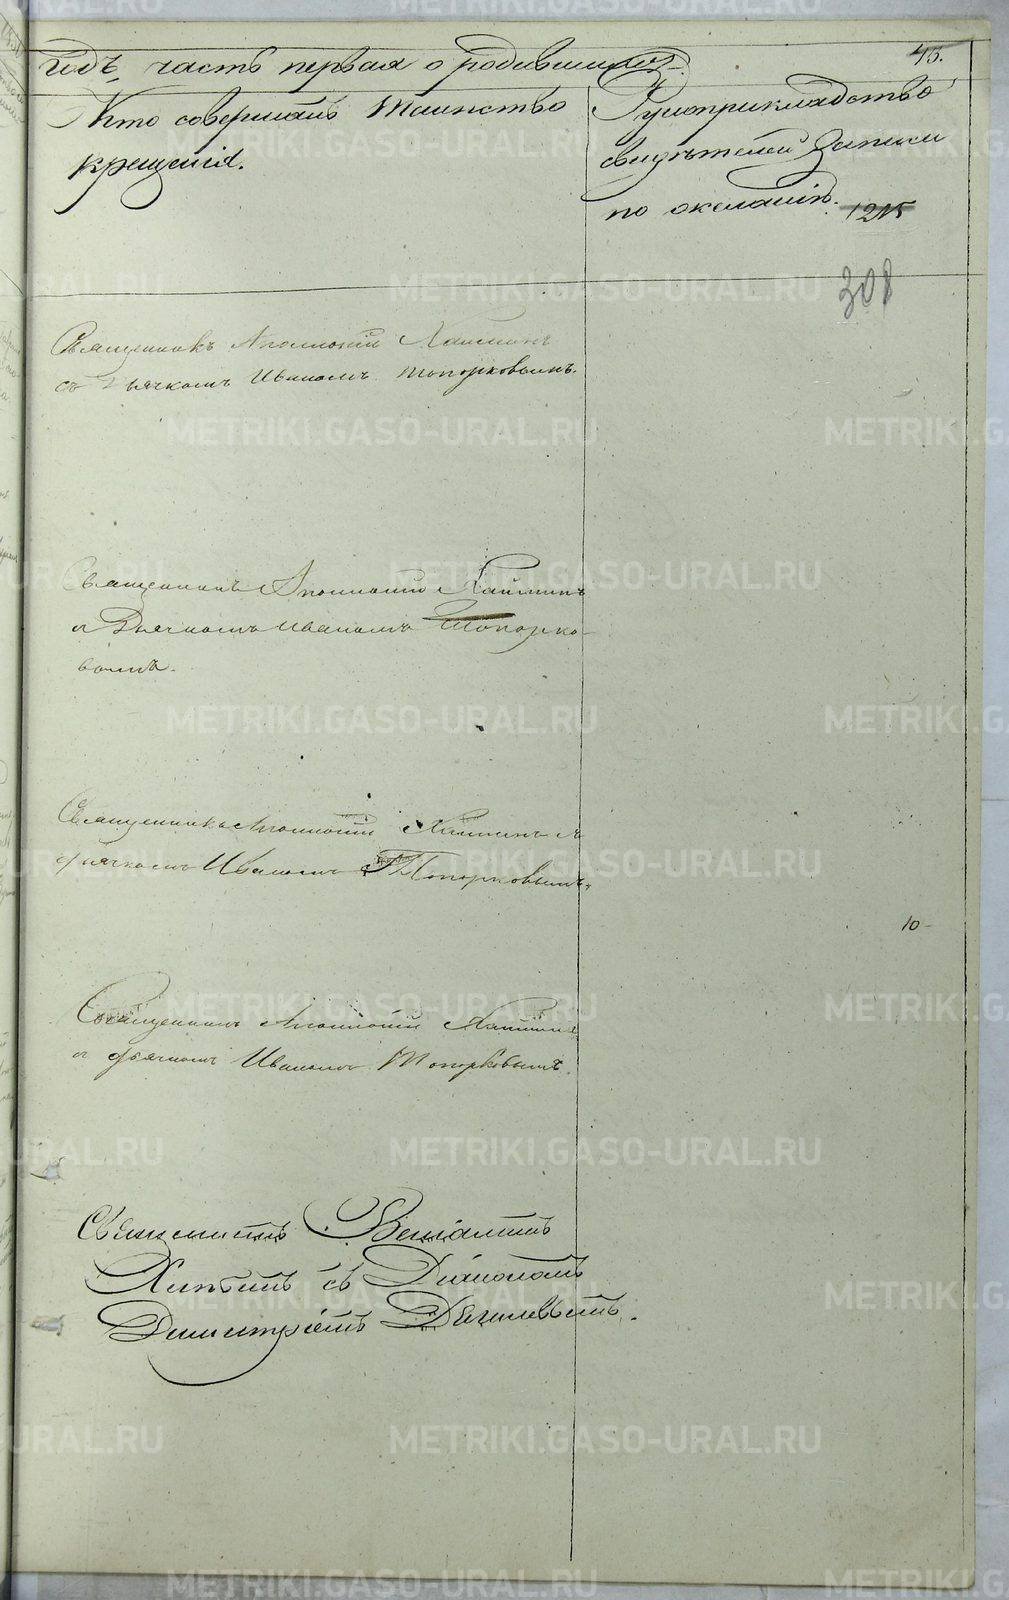 годъ, часть первая о родившихся. 45.
Кто совершалъ Таинство
крещенія.
Рукоприкладство
свидѣтелей Записи
по желанію. 1215
308
Священникъ Аполлоній Хлынинъ
съ дьячкомъ Иваномъ Топорковымъ.
Священникъ Аполлоній
и Дьячкомъ Иваномъ Топорко-
вымъ.
Священникъ Аполлоній
дьячкомъ Иваномъ Топорковымъ.
10-
Священникъ Аполлоній
и дьячкомъ Иваномъ Топорковымъ.
Веніаминъ
съ Діакономъ
Димитріемъ
METRIKI.GASO-URAL.RU